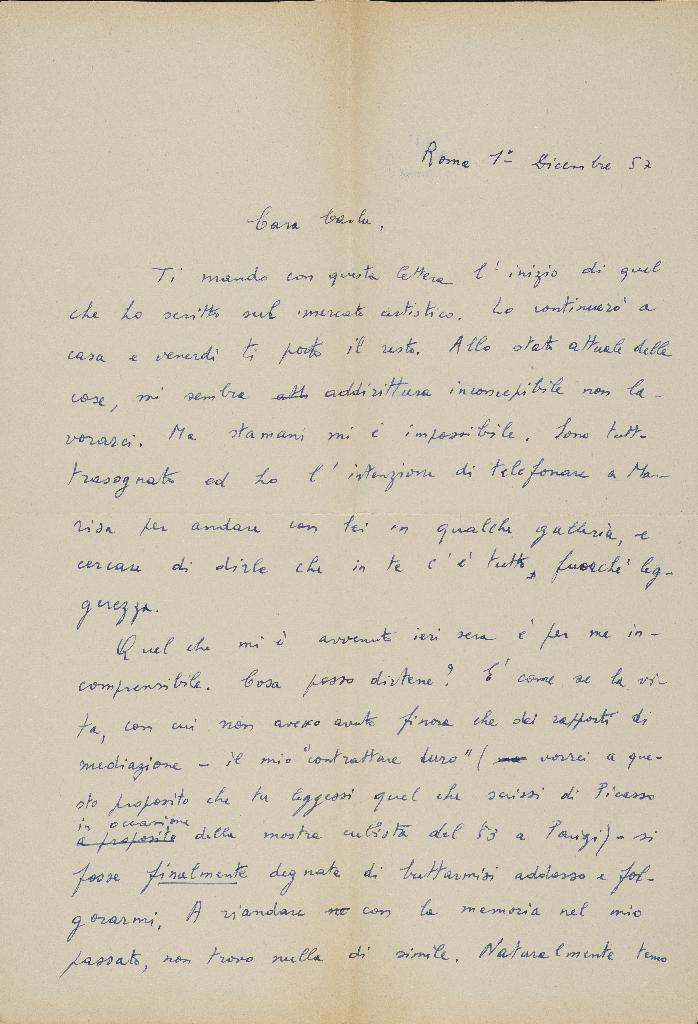 Roma 1° Dicembre 57
Cara Carla,
Ti mando con questa lettera l'inizio di quel
che ho scritto sul mercato artistico. Lo continuerò a
casa e venerdì ti porto il resto. Allo stato attuale delle
cose, mi sembra addirittura inconcepibile non la-
vorarci. Ma stamani mi è impossibile. Sono tutt-
trasognato ed ho l'intenzione di telefonare a Ma-
risa per andare con lei in qualche galleria, e
cercare di dirle che in te c'è tutto, fuorché leg-
gerezza.
Quel che mi è avvenuto ieri sera è per me in-
comprensibile. Cosa posso dirtene? È come se la vi-
ta, con cui non avevo avuto finora che dei rapporti di
mediazione – il mio "contrattare duro" (vorrei a que-
sto proposito che tu leggessi quel che scrissi di Picasso
in occasione
a proposito della mostra cubista del 53 a Parigi) – si
fosse finalmente degnata di buttarmisi addosso e fol-
gorarmi. A riandare con la memoria nel mio
passato, non trovo nulla di simile. Naturalmente temo